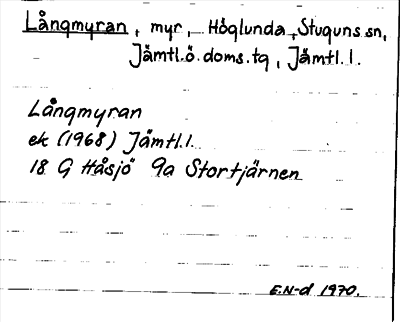 Långmyran, myr, Höglunda, Stuguns sn,
Jämtl.ö.doms.tg, Jämtl.l.
Långmyran
ek (1968) Jämtl.l.
18 G Håsjö 9a Stortjärnen
E.N-d 1970.